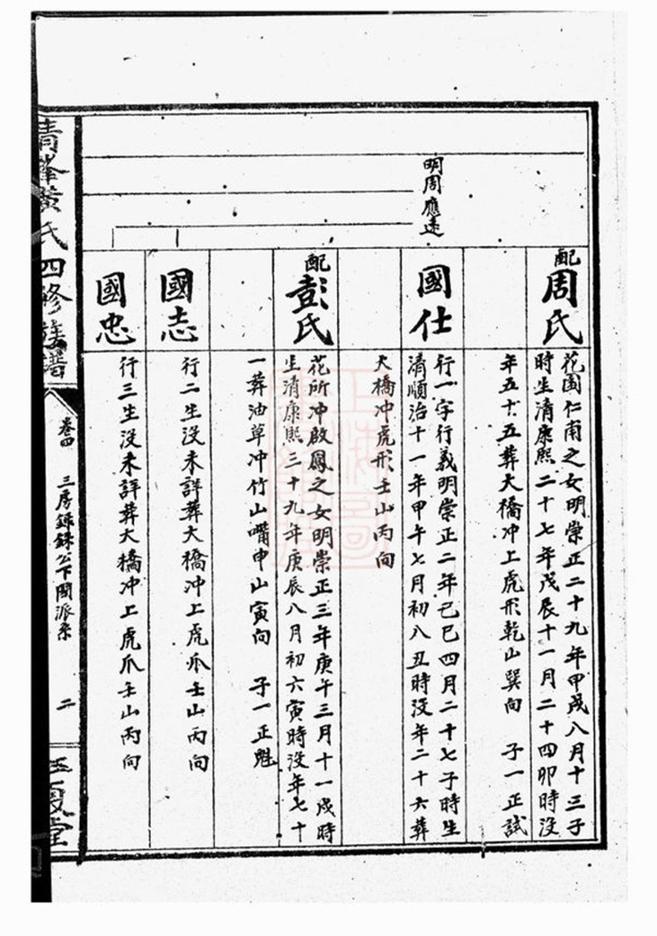 明周應遠
配周氏
花園仁甫之女明崇正二十九年甲戌八月十三子
時生清康熙二十七年戊辰十一月二十四卯時沒
年五十五葬大橋冲上虎形乾山巽向 子一正試
國仕
行一字行義明崇正二年己巳四月二十七子時生
清順治十一年甲午七月初八丑時沒年二十六葬
大橋冲虎形壬山丙向
配彭氏
花所冲啟鳳之女明崇正三年庚午三月十一戌時
生清康熙三十九年庚辰八月初六寅時沒年七十
一葬油草冲竹山嘴申山寅向 子一正魁
國志
行二生沒未詳葬大橋冲上虎爪壬山丙向
國忠
行三生沒未詳葬大橋冲上虎爪壬山丙向
青峰黄氏四修族譜
卷四
三房錄公下聞派系
二